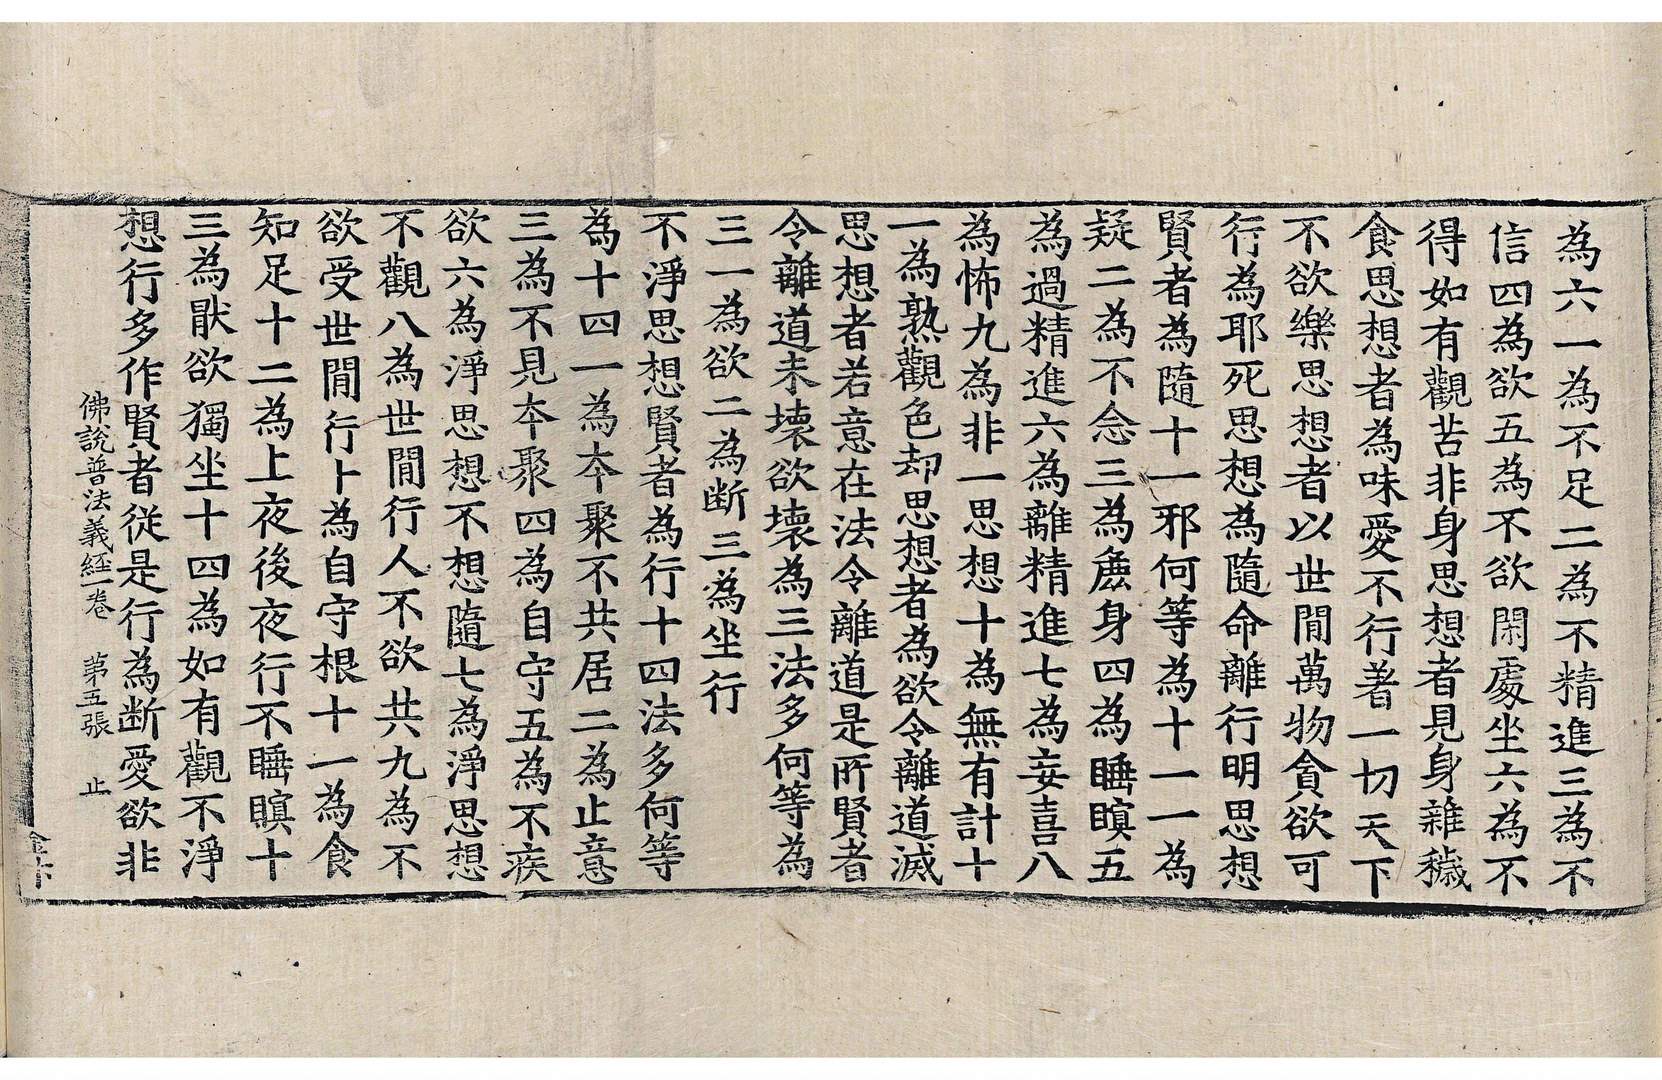 為六一為不足二為不精進三為不
信四為欲五為不欲閑處坐六為不
得如有觀苦非身思想者見身雜穢
食思想者為味愛不行著一切天下
不欲樂思想者以世閒萬物貪欲可
行為耶死思想為隨命離行明思想
賢者為隨十一邪何等為十一一為
疑二為不念三為麁身四為睡瞑五
為過精進六為離精進七為妄喜八
為怖九為非一思想十為無有計十
一為熟觀色却思想者為欲令離道滅
思想者若意在法令離道是所賢者
令離道未壞欲壞為三法多何等為
三一為欲二為断三為坐行
不淨思想賢者為行十四法多何等
為十四一為夲聚不共居二為止意
三為不見夲聚四為自守五為不疾
欲六為淨思想不想隨七為淨思想
不觀八為世閒行人不欲共九為不
欲受世閒行十為自守根十一為食
知足十二為上夜後夜行不睡瞑十
三為猒欲獨坐十四為如有觀不淨
想行多作賢者從是行為断愛欲非
佛說普法義経一卷 第五張 止